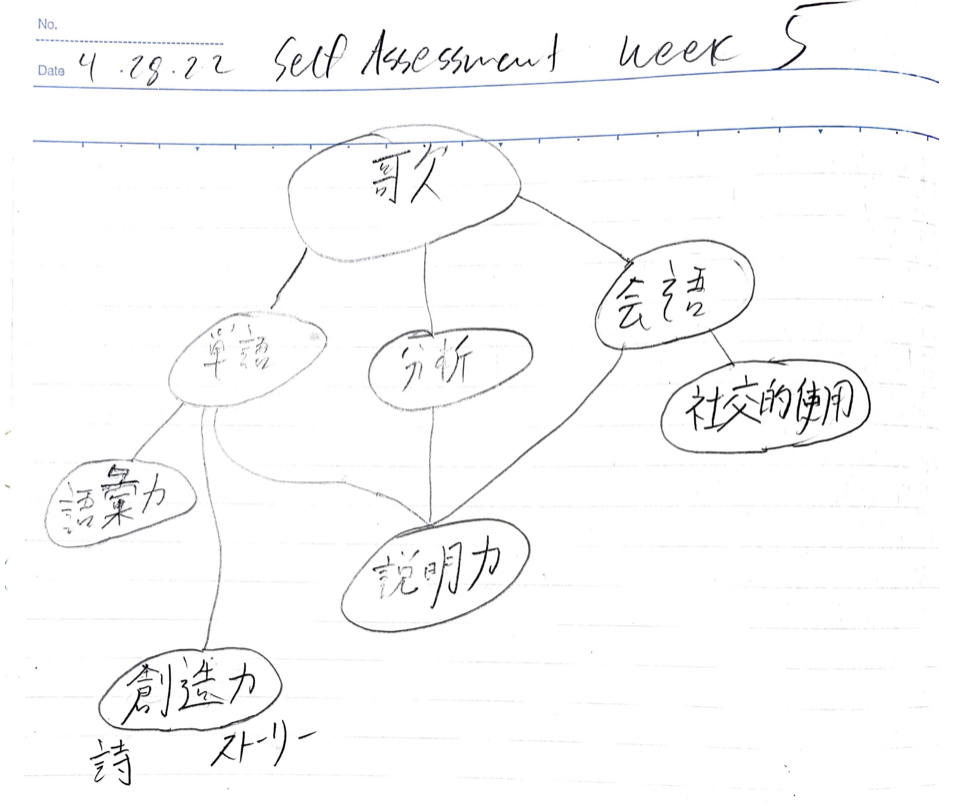 No.
Date 4.28.22 Self Assessment week 5
歌
単語
分析
会話
社交的使用
語彙力
説明力
創造力
詩
ストーリー